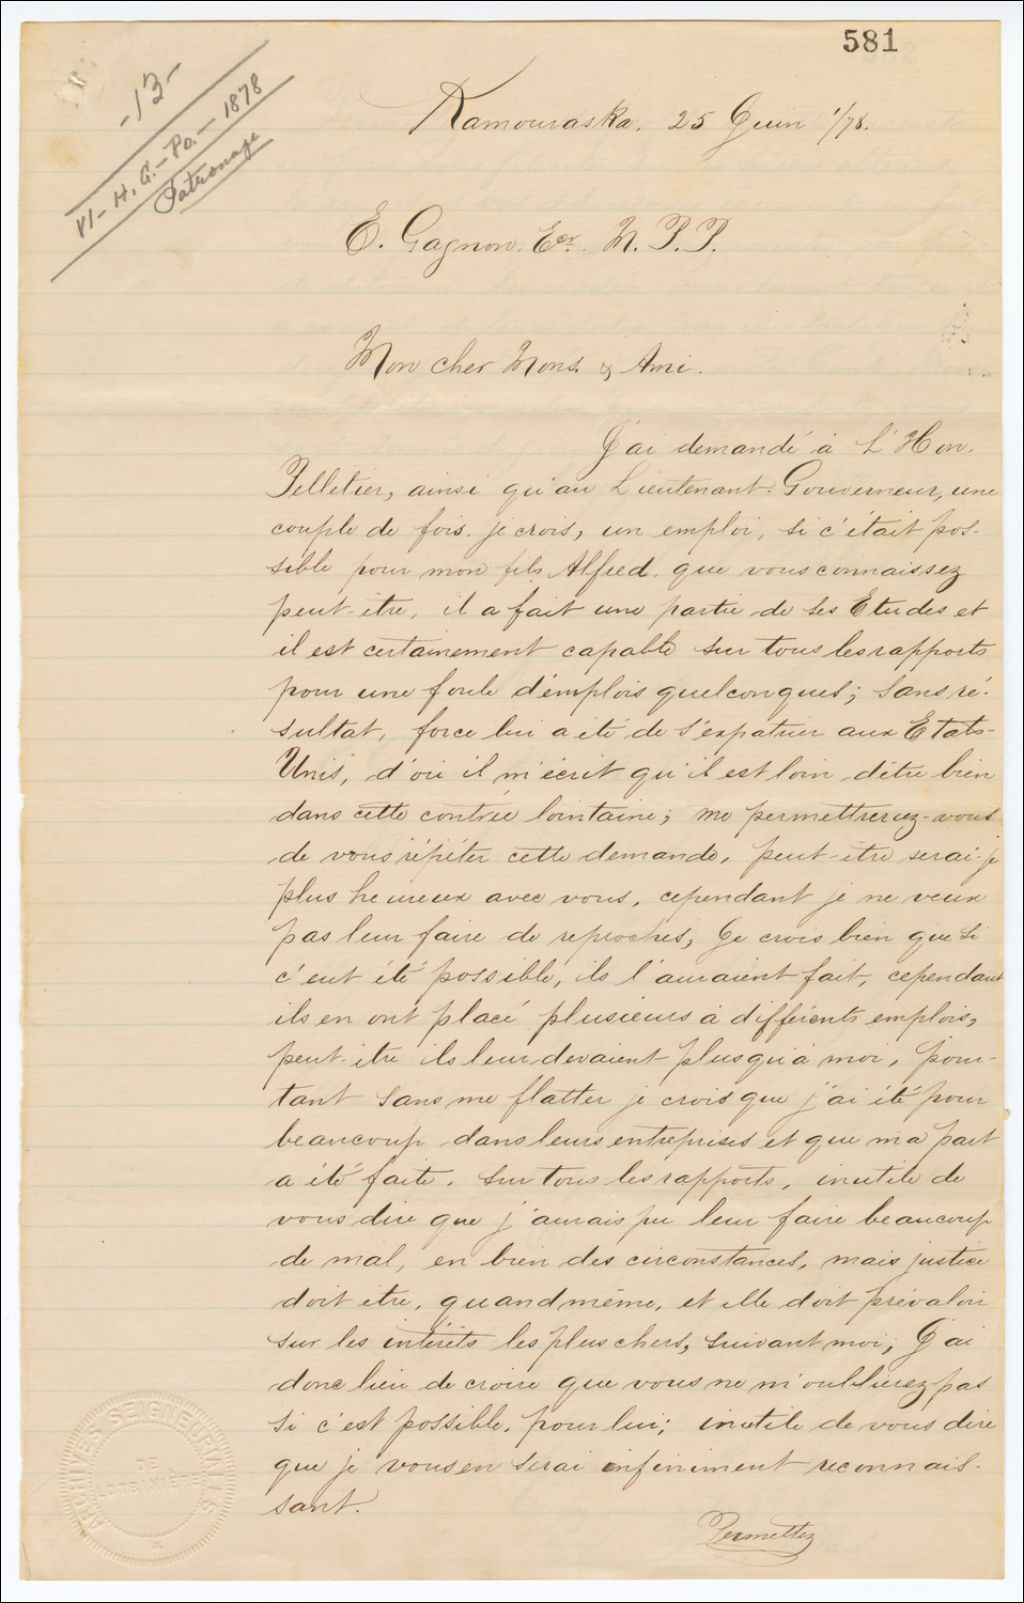 581
-13-
VI- H. G. - Po. - 1878
Patronage
Kamouraska. 25 Juin 1/78.
E. Gagnon. Ecr. M. P. P.
Mon cher Mons. & Ami.
J'ai demandé à L'Hon.
Pelletier, ainsi qu'au Lieutenant-Gouverneur, une
couple de fois. je crois, un emploi, si c'était pos-
sible pour mon fils Alfred. que vous connaissez
peut-être, il a fait une partie de ses Etudes et
il est certainement capable sur tous les rapports
pour une foule d'emplois quelconques; sans ré-
sultat, force lui a été de s'expatrier aux Etats-
Unis, d'où il m'écrit qu'il est loin d'être bien
dans cette contrée lointaine; me permettreriez-vous
de vous répéter cette demande, peut-être serai-je
plus heureux avec vous, cependant je ne veux
pas leur faire de reproches, Je crois bien que si
c'eut été possible, ils l'auraient fait, cependant
ils en ont placé plusieurs à différents emplois,
peut-être ils leur devaient plus qu'à moi, pour-
tant sans me flatter je crois que j'ai été pour
beaucoup dans leurs entreprises et que ma part
a été faite. sur tous les rapports, inutile de
vous dire que j'aurais pu leur faire beaucoup
de mal, en bien des circonstances, mais justice
doit être, quand même, et elle doit prévaloir
sur les intérêts les plus chers, suivant moi; J'ai
donc lieu de croire que vous ne m'oublierez pas
si c'est possible. pour lui; inutile de vous dire
que je vous en serai infiniment reconnais-
sant.
Permettez
ARCHIVES SEIGNEURIALES
DE
LOTBINIÈRE